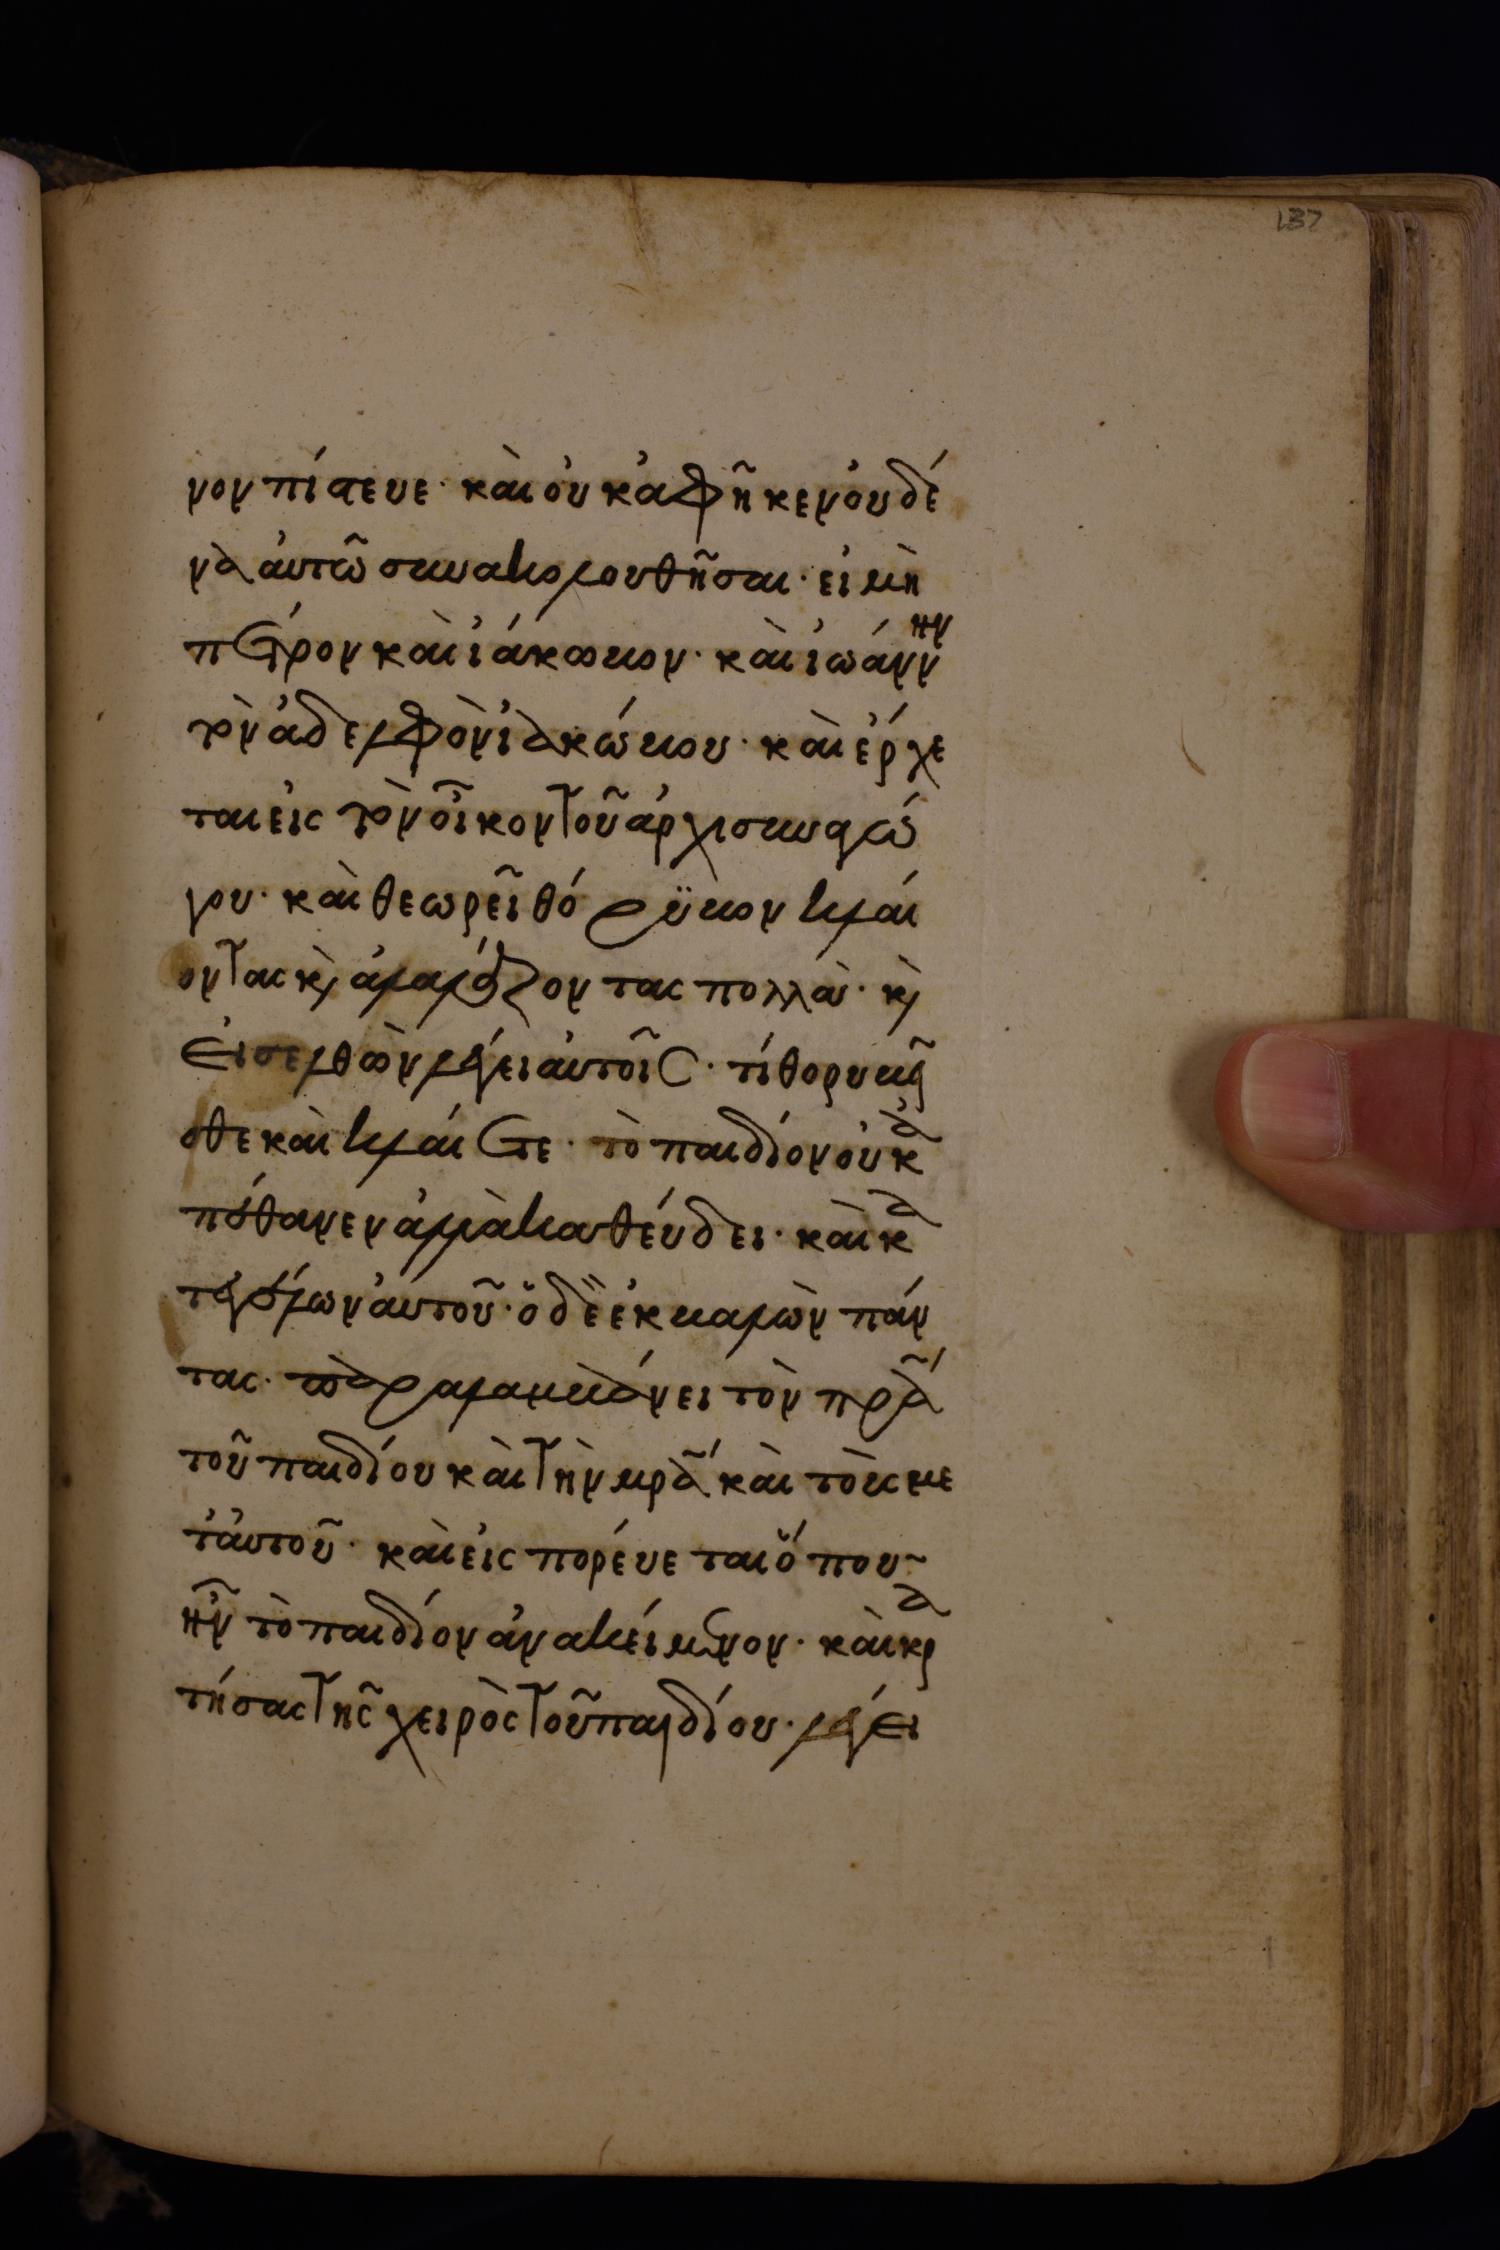 137
νον πίστευε· καὶ οὐκ ἀφῆκεν οὐδέ
να αὐτῶ συνακολουθῆσαι· εἰ μὴ
πέτρον καὶ ἰάκωβον· καὶ ἰωάννην
τὸν ἀδελφὸν ἰακώβου· καὶ ἔρχε
ται εἰς τὸν οἶκον τοῦ ἀρχισυναγώ
γου· καὶ θεωρεῖ θόρϋβον κλαί
οντας κ̀ ἀλαλάζοντας πολλὰ· κ̀
εἰσελθὼν λέγει αὐτοῖς· τί θορυβεῖ
σθε καὶ κλαίετε· τὸ παιδίον οὐκ ἀ
πέθανεν ἀλλὰ καθεύδει· καὶ κα
τεγέλων αὐτοῦ· ὁ δὲ ἐκβαλὼν πάν
τας· παραλαμβάνει τὸν πρ̃α
τοῦ παιδίου καὶ τὴν μρ̃α καὶ τοὺς με
τ' αὐτοῦ· καὶ εἰσπορεύεται ὅπου
ἦν τὸ παιδίον ἀνακείμενον· καὶ κρα
τήσας τῆς χειρὸς τοῦ παιδίου· λέγει